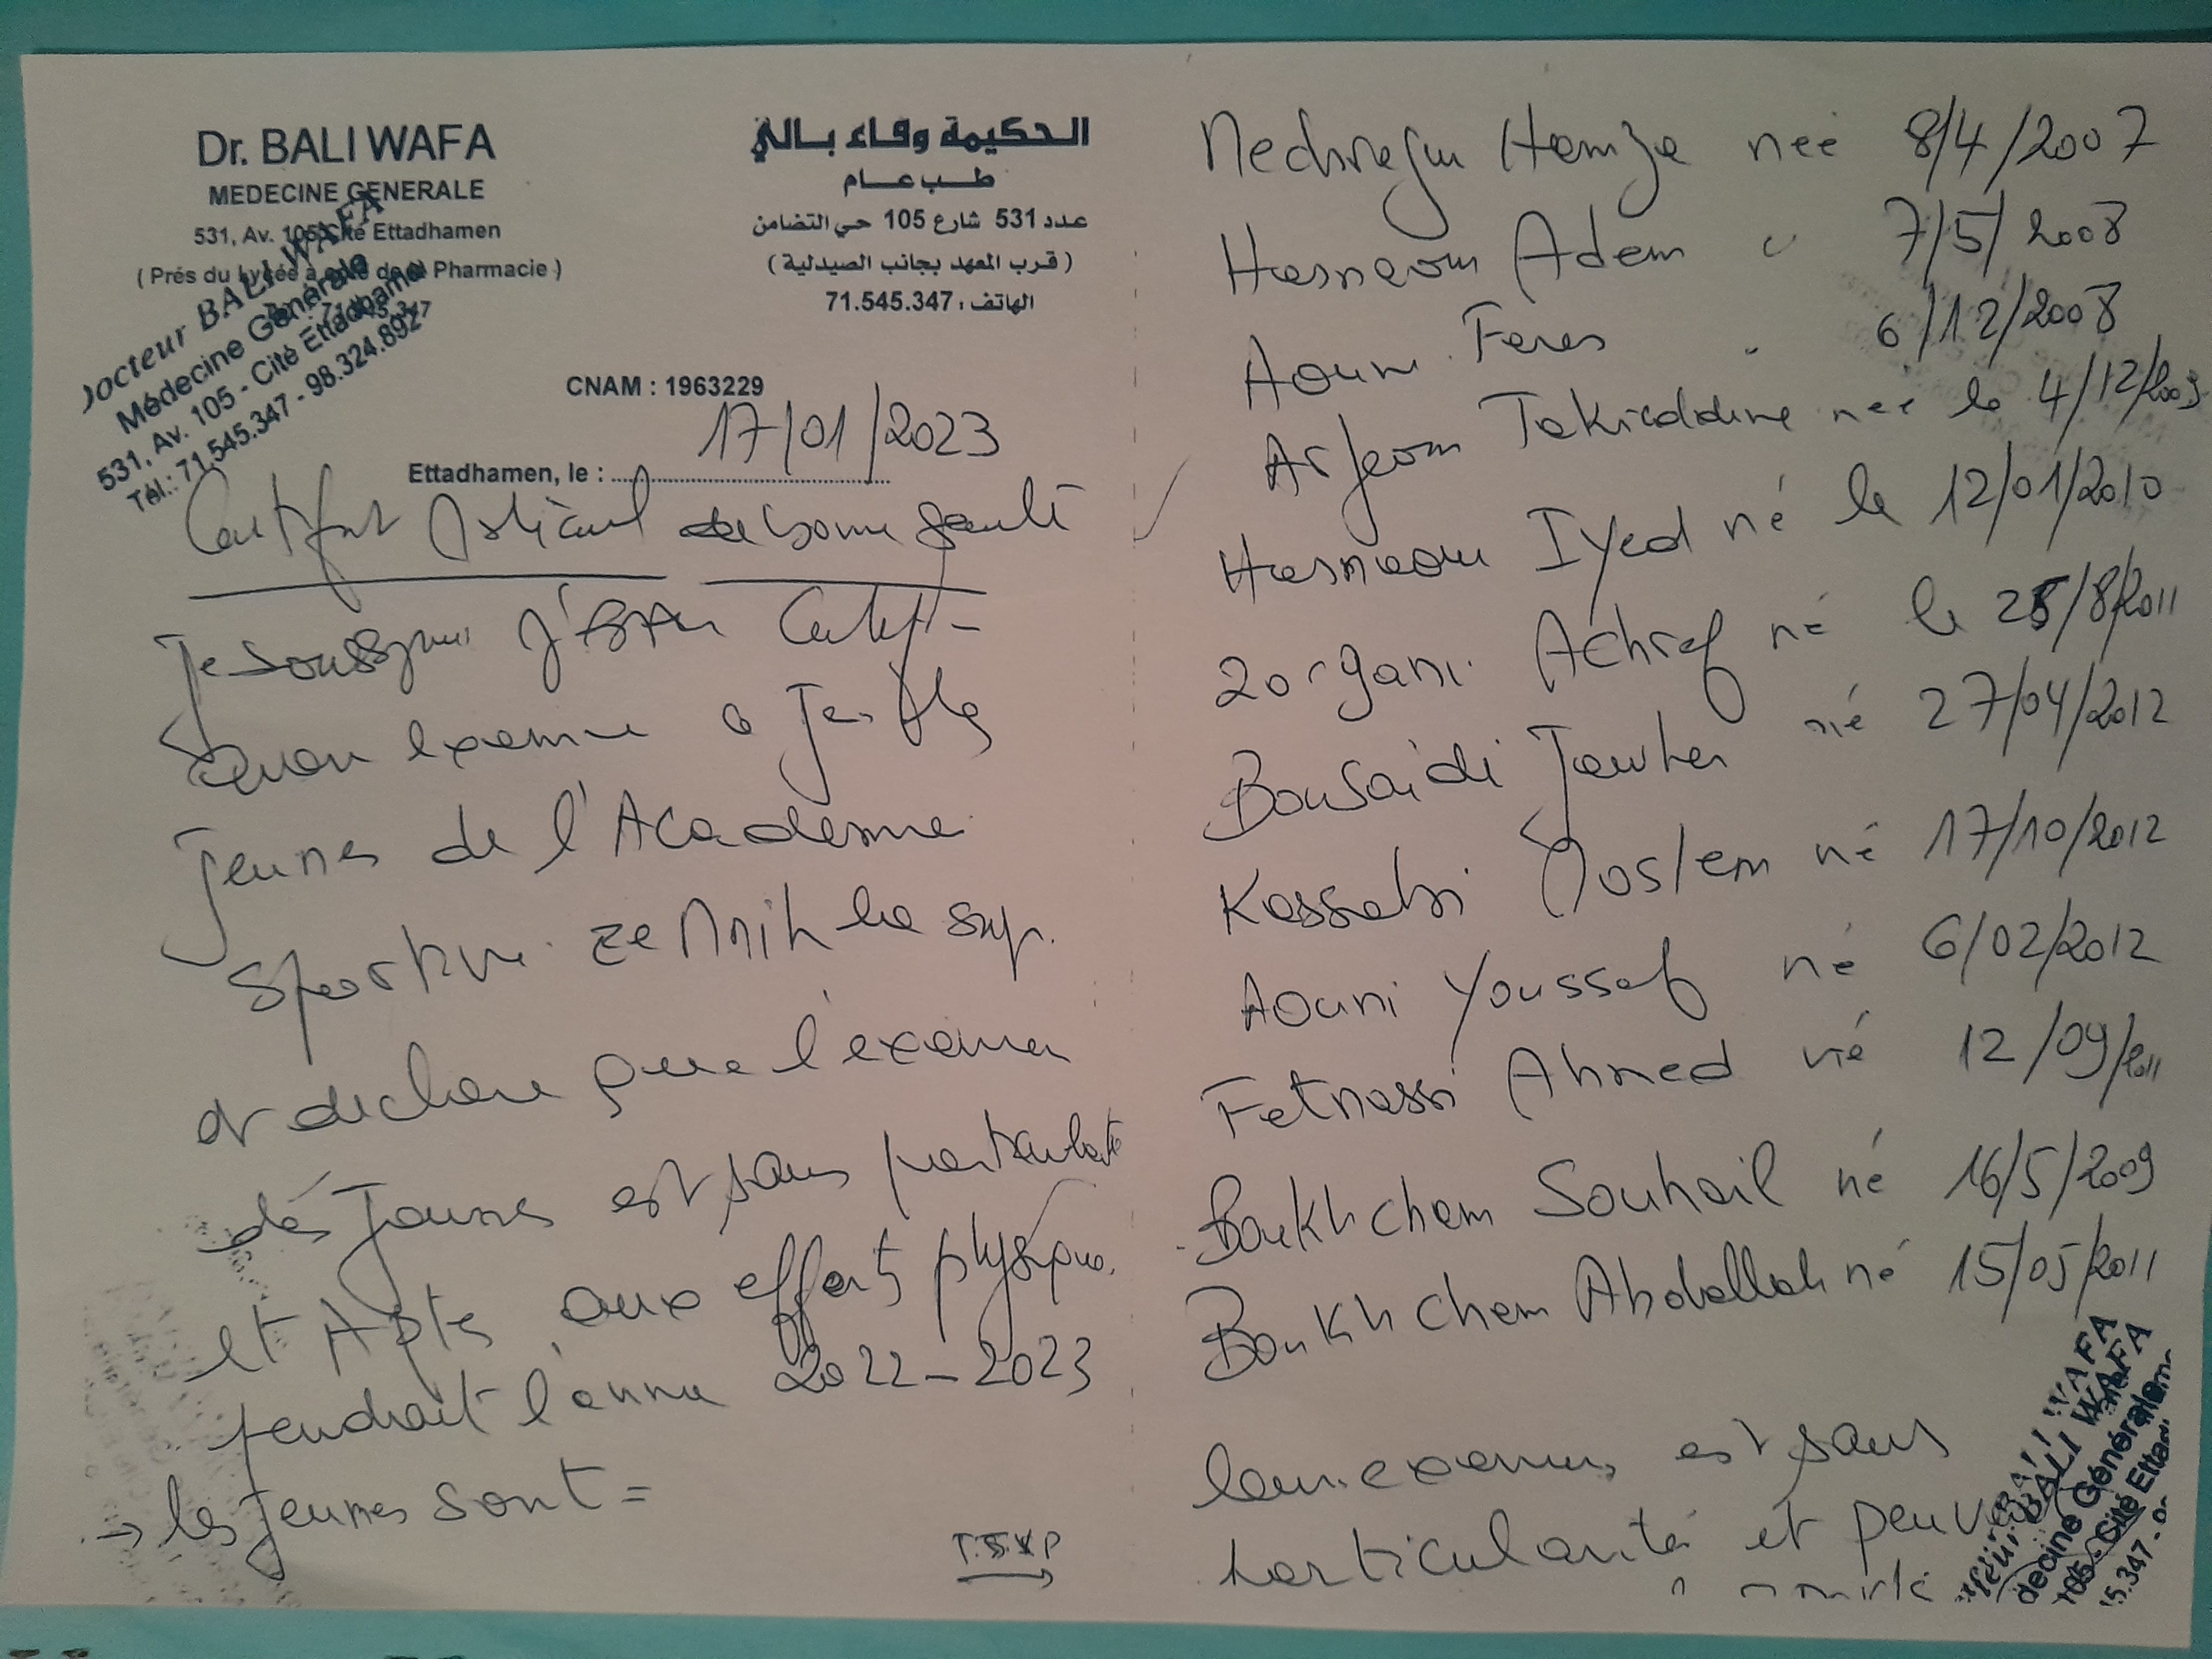 Dr. BALI WAFA
MEDECINE GENERALE
531, Av. 105 Cité Ettadhamen
( Prés du Lycée à de la Pharmacie )
الحكيمة وفاء بالي
طب عام
عدد 531 شارع 105 حي التضامن
( قرب المعهد بجانب الصيدلية )
الهاتف : 71.545.347
Docteur BALI WAFA
Médecine Générale
531, Av. 105 - Cité Ettadhamen
Tél.: 71.545.347 - 98.324.892
CNAM : 1963229
Ettadhamen, le : 17/01/2023
de bonne santé
Je soussigné
avoir examiné
jeunes de l'Académie
Sportive
et déclare que l'examen
des Jeunes est sans particularité
et Aptes aux efforts physique
pendant l'année 2022-2023
→ les Jeunes sont =
T.S.V.P
Hamza née 8/4/2007
Adem 7/5/2008
Feres 6/12/2008
Takieddine née le 4/12/2009
Iyed né le 12/01/2010
Zorgani Achref né le /8/2011
Bousaidi Jawher né 27/04/2012
Kassabi Moslem né 17/10/2012
Aouni Youssef né 6/02/2012
Fetnassi Ahmed né 12/09/2011
Boukhchem Souhail né 16/5/2009
Boukhchem Abdallah né 15/05/2011
est sans
particularité et peuvent
BALI WAFA
decine Générale
105 - Cité Ettad
5.347 -